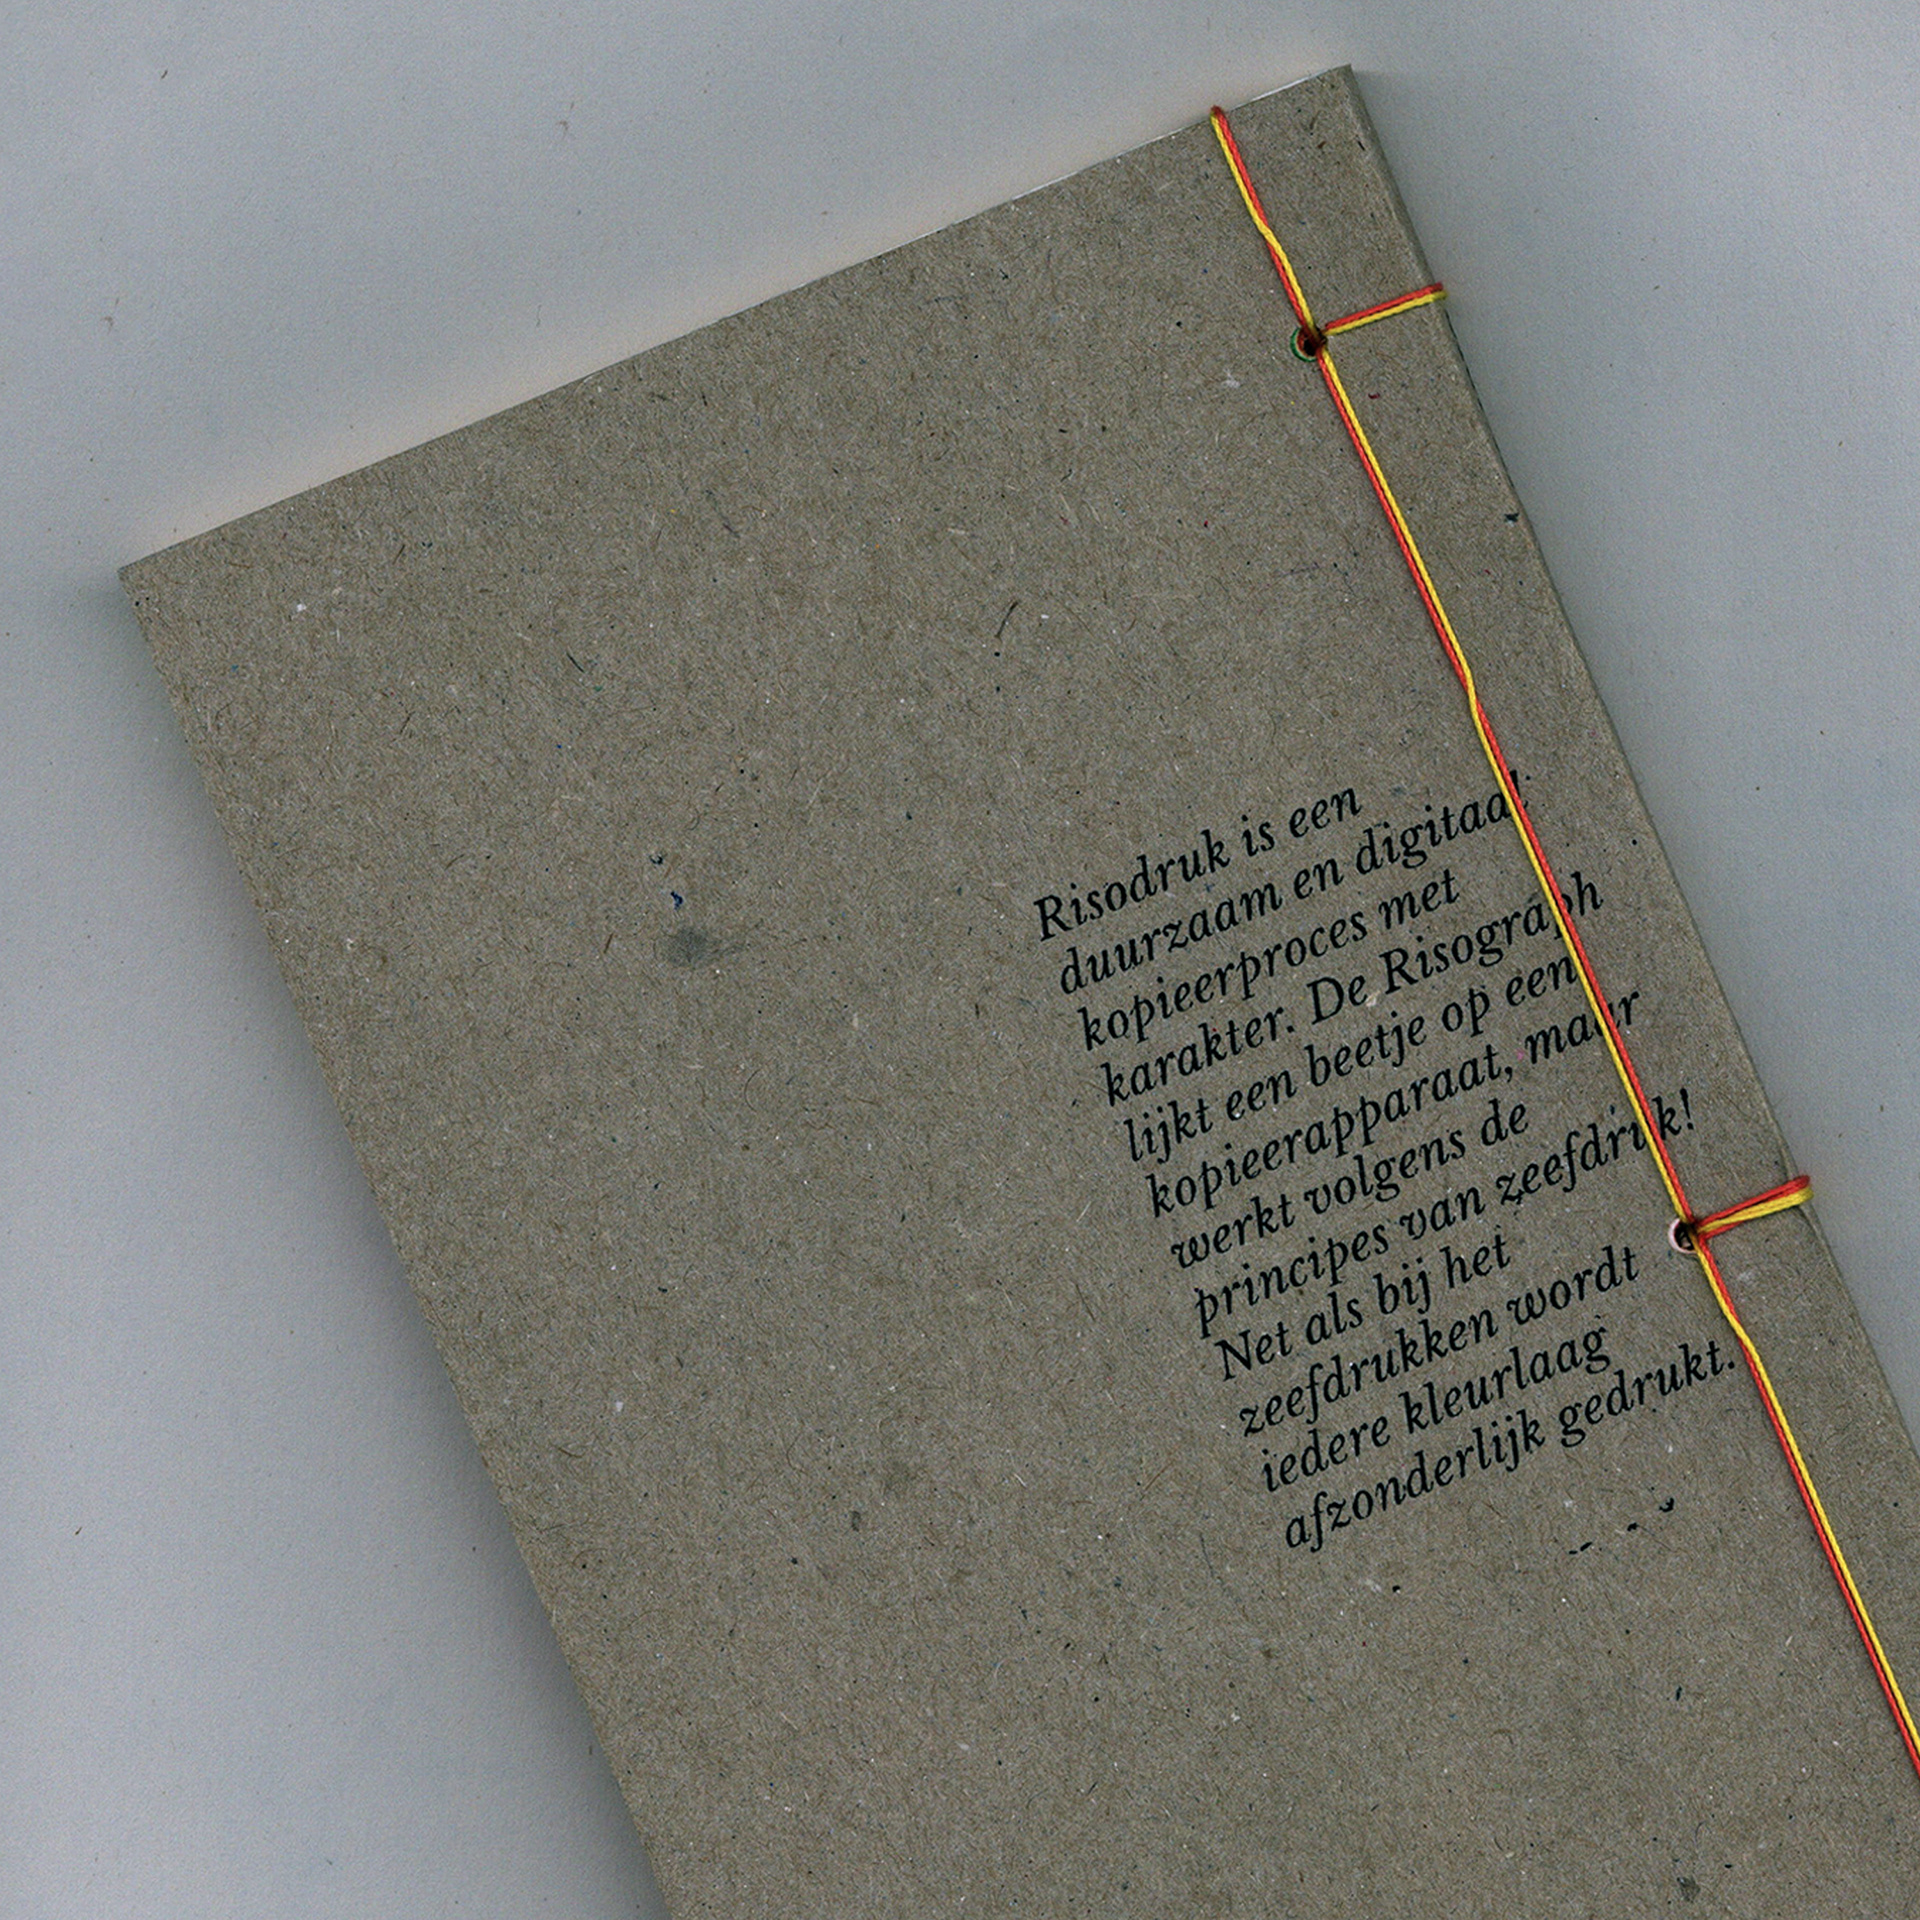 Risodruk is een
duurzaam en digitaal
kopieerproces met
karakter. De Risograph
lijkt een beetje op een
kopieerapparaat, maar
werkt volgens de
principes van zeefdruk!
Net als bij het
zeefdrukken wordt
iedere kleurlaag
afzonderlijk gedrukt.